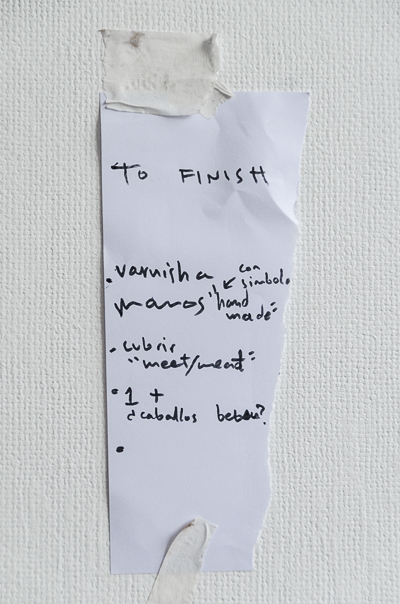 TO FINISH
• varnish a
con
símbolo
manos "hand
made"
• cubrir
"meet/meat"
• 1 +
¿caballos beben?
•